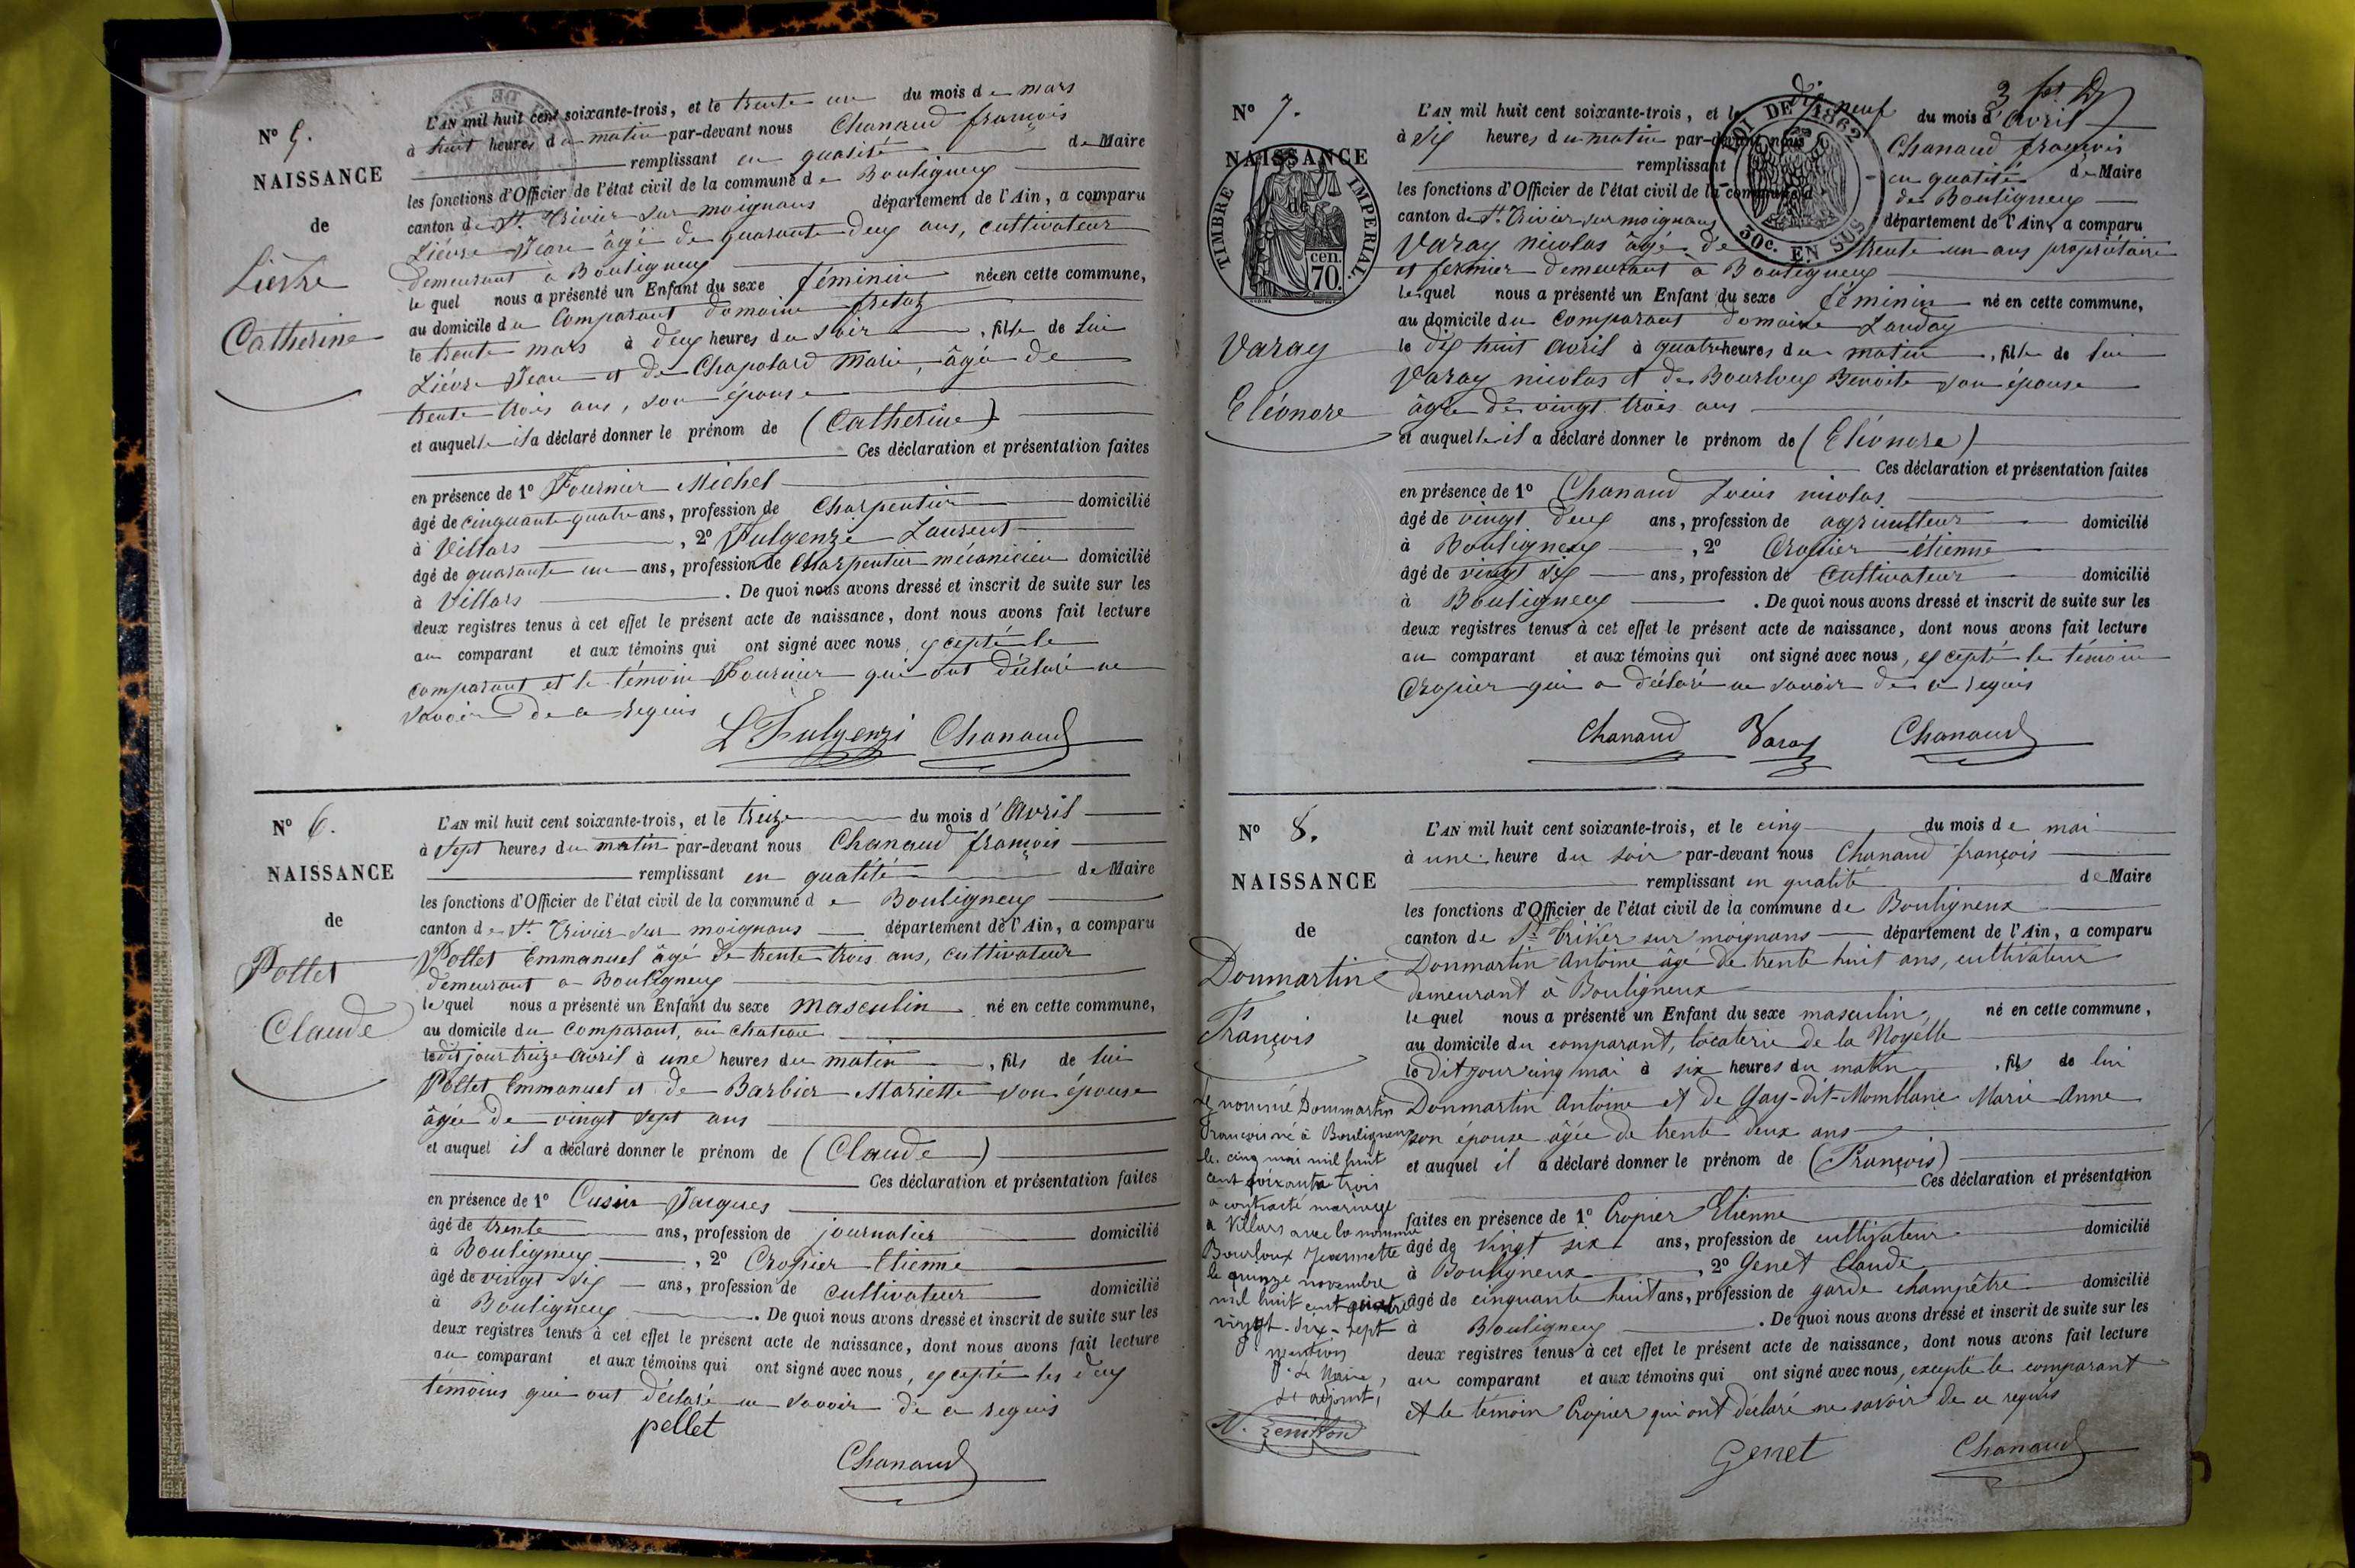 N° 5.
NAISSANCE
de
Lièvre
Catherine
L'AN mil huit cent soixante-trois, et le trente un du mois de mars
à huit heures du matin par-devant nous Chanaud françois
remplissant en qualité de Maire
les fonctions d'Officier de l'état civil de la commune de Bouligneux
canton de St. Trivier sur moignans département de l'Ain, a comparu
Lièvre Jean âgé de quarante deux ans, cultivateur
demeurant à Bouligneux
lequel nous a présenté un Enfant du sexe féminin née en cette commune,
au domicile du Comparant domaine
le trente mars à deux heures du soir, fille de lui
Lièvre Jean et de Chapolard Marie, âgée de
trente trois ans, son épouse
et auquelle il a déclaré donner le prénom de (Catherine)
Ces déclaration et présentation faites
en présence de 1° Fournier Michel
âgé de cinquante quatre ans, profession de Charpentier domicilié
à Villars, 2° Fulgenzi Laurent
âgé de quarante un ans, profession de Charpentier mécanicien domicilié
à Villars. De quoi nous avons dressé et inscrit de suite sur les
deux registres tenus à cet effet le présent acte de naissance, dont nous avons fait lecture
au comparant et aux témoins qui ont signé avec nous, excepté le
comparant et le témoin Fournier qui ont déclaré ne
savoir de ce requis
L Fulgenzi Chanaud
N° 6.
NAISSANCE
de
Pollet
Claude
L'AN mil huit cent soixante-trois, et le treize du mois d'Avril
à sept heures du matin par-devant nous Chanaud françois
remplissant en qualité de Maire
les fonctions d'Officier de l'état civil de la commune de Bouligneux
canton de St. Trivier sur moignans département de l'Ain, a comparu
Pollet Emmanuel âgé de trente trois ans, cultivateur
demeurant à Bouligneux
lequel nous a présenté un Enfant du sexe masculin né en cette commune,
au domicile du Comparant, au chateau
ledit jour treize avril à une heures du matin, fils de lui
Pollet Emmanuel et de Barbier Mariette son épouse
âgée de vingt sept ans
et auquel il a déclaré donner le prénom de (Claude)
Ces déclaration et présentation faites
en présence de 1° Cusin Jacques
âgé de trente ans, profession de journalier domicilié
à Bouligneux, 2° Cropier Etienne
âgé de vingt six ans, profession de cultivateur domicilié
à Bouligneux. De quoi nous avons dressé et inscrit de suite sur les
deux registres tenus à cet effet le présent acte de naissance, dont nous avons fait lecture
au comparant et aux témoins qui ont signé avec nous, excepté les deux
témoins qui ont déclaré ne savoir de ce requis
pellet
Chanaud
N° 7.
NAISSANCE
de
TIMBRE IMPÉRIAL
cen. 70.
Varay
Eléonore
LOI DE 1862
30c. EN SUS
L'AN mil huit cent soixante-trois, et le dix neuf du mois d'Avril
à dix heures du matin par-devant nous Chanaud françois
remplissant en qualité de Maire
les fonctions d'Officier de l'état civil de la commune de Bouligneux
canton de St. Trivier sur moignans département de l'Ain, a comparu
Varay nicolas âgé de trente un ans propriétaire
et fermier demeurant à Bouligneux
lequel nous a présenté un Enfant du sexe féminin né en cette commune,
au domicile du Comparant domaine
le dix huit avril à quatre heures du matin, fille de lui
Varay nicolas et de Bourloux Benoite son épouse
âgée de vingt trois ans
et auquelle il a déclaré donner le prénom de (Eléonore)
Ces déclaration et présentation faites
en présence de 1° Chanaud Louis nicolas
âgé de vingt deux ans, profession de agriculteur domicilié
à Bouligneux, 2° Cropier étienne
âgé de vingt six ans, profession de cultivateur domicilié
à Bouligneux. De quoi nous avons dressé et inscrit de suite sur les
deux registres tenus à cet effet le présent acte de naissance, dont nous avons fait lecture
au comparant et aux témoins qui ont signé avec nous, excepté le témoin
Cropier qui a déclaré ne savoir de ce requis
Chanaud Varay Chanaud
N° 8.
NAISSANCE
de
Donmartin
François
Le nommé Dommartin
François né à Bouligneux
le cinq mai mil huit
cent soixante trois
a contracté mariage
à Villars avec la nommée
Bourloux Jeannette
le quinze novembre
mil huit cent quatre
vingt-dix-sept
mention
Le Maire,
L'adjoint,
L'AN mil huit cent soixante-trois, et le cinq du mois de mai
à une heure du soir par-devant nous Chanaud françois
remplissant en qualité de Maire
les fonctions d'Officier de l'état civil de la commune de Bouligneux
canton de St Trivier sur moignans département de l'Ain, a comparu
Donmartin Antoine âgé de trente huit ans, cultivateur
demeurant à Bouligneux
lequel nous a présenté un Enfant du sexe masculin, né en cette commune,
au domicile du comparant, locaterie de la Noyelle
ledit jour cinq mai à six heures du matin, fils de lui
Donmartin Antoine et de Gay-dit-Momblanc Marie Anne
son épouse âgée de trente deux ans
et auquel il a déclaré donner le prénom de (François)
Ces déclaration et présentation
faites en présence de 1° Cropier Etienne
âgé de vingt six ans, profession de cultivateur domicilié
à Bouligneux, 2° Genet Claude
âgé de cinquante huit ans, profession de garde champêtre domicilié
à Bouligneux. De quoi nous avons dressé et inscrit de suite sur les
deux registres tenus à cet effet le présent acte de naissance, dont nous avons fait lecture
au comparant et aux témoins qui ont signé avec nous, excepté le comparant
et le témoin Cropier qui ont déclaré ne savoir de ce requis
Genet Chanaud